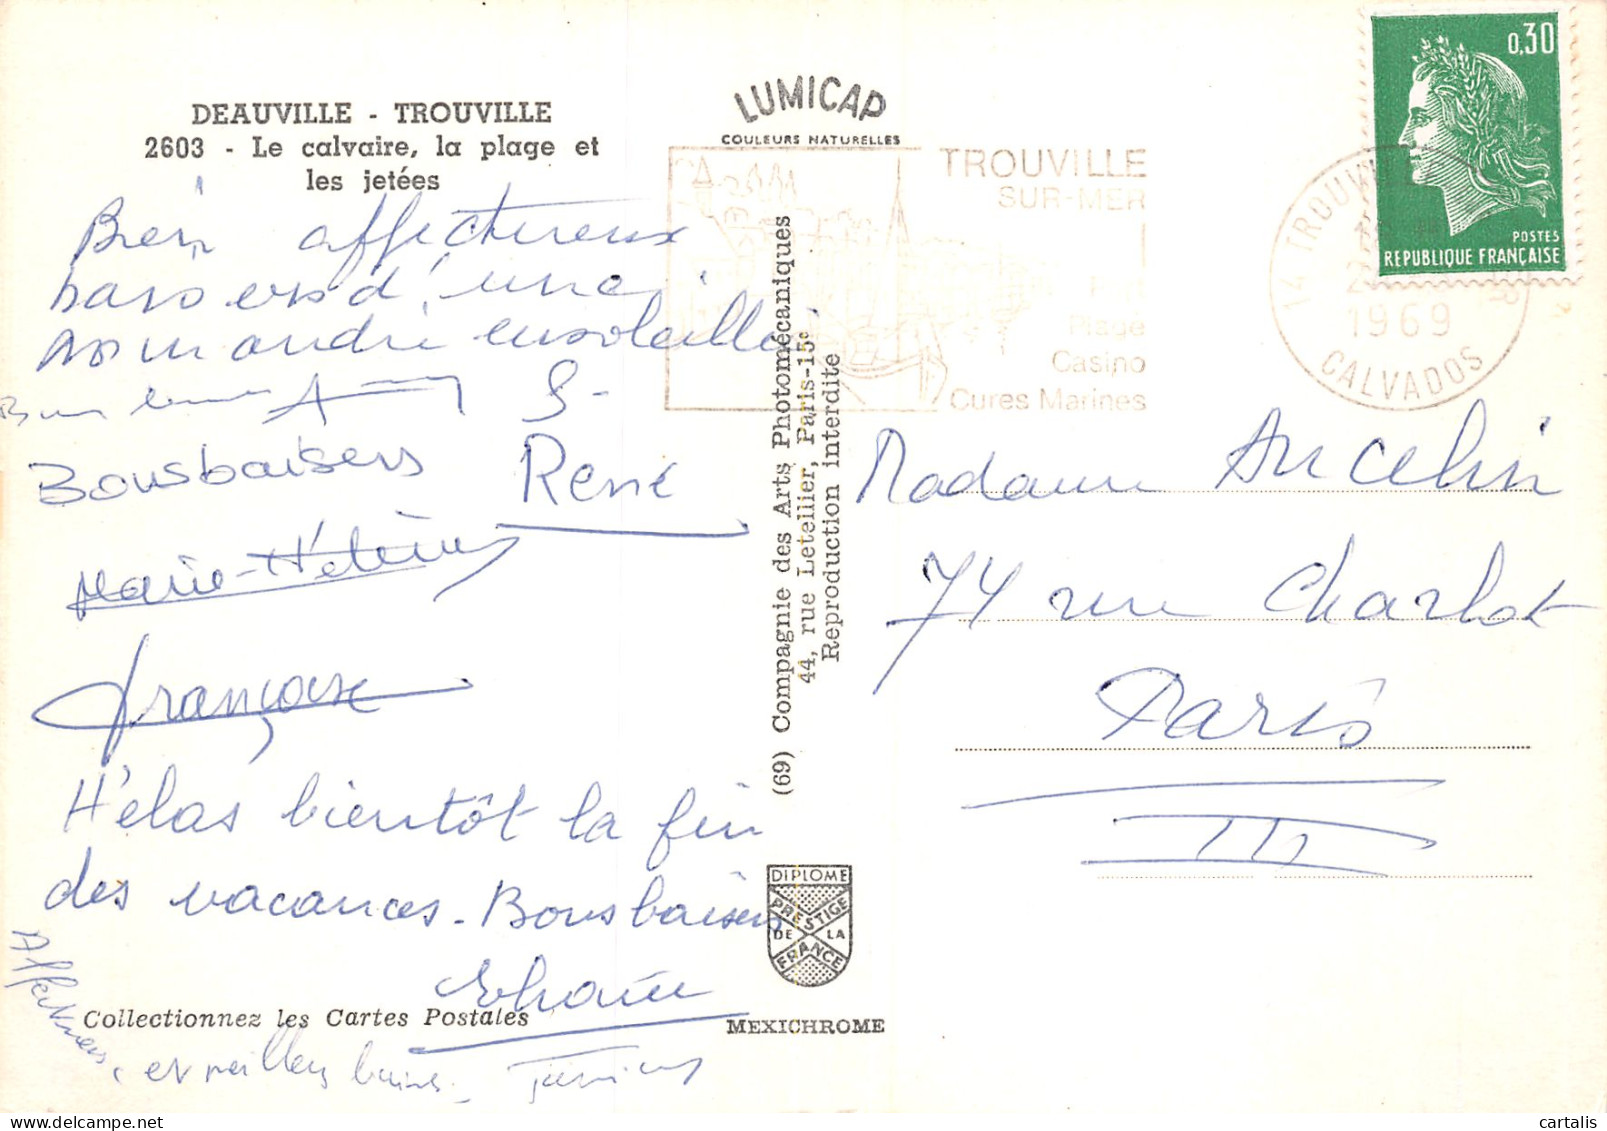 DEAUVILLE - TROUVILLE
2603 - Le calvaire, la plage et
les jetées
Bien affectueux
baisers d'une
Normandie ensoleillée
Bons baisers
René
Marie-Hélène
Françoise
Hélas bientôt la fin
des vacances - Bons baisers
Affectueux
et meilleurs baisers
Collectionnez les Cartes Postales
LUMICAP
COULEURS NATURELLES
TROUVILLE
SUR-MER
Port
Plage
Casino
Cures Marines
(69) Compagnie des Arts Photomécaniques
44, rue Letellier, Paris-15e
Reproduction interdite
DIPLOME
PRESTIGE
DE LA
FRANCE
MEXICHROME
0,30
POSTES
REPUBLIQUE FRANÇAISE
14 TROUVILLE
1969
CALVADOS
Madame Ancelin
74 rue Charlot
Paris
III
cartalis